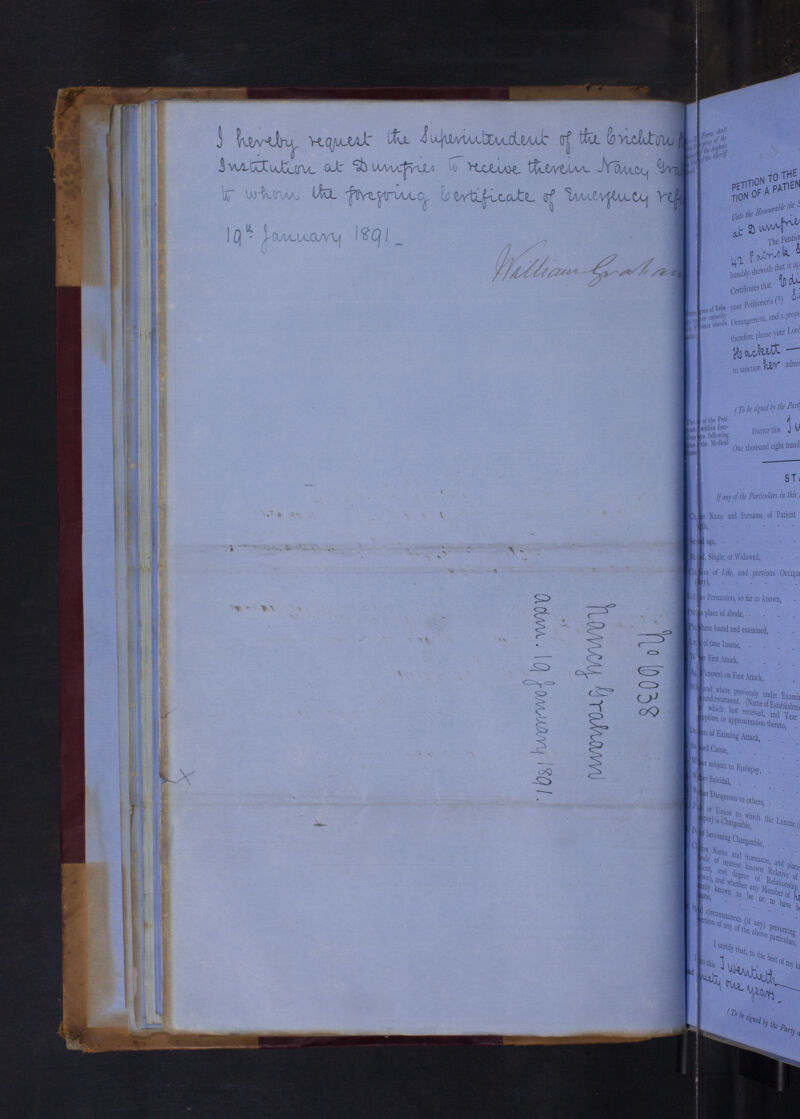 I hereby request the Superintendent of the Crichton
Institution at Dumfries to receive therein Nancy
to whom the foregoing Certificate of Emergency
19th January 1891
William Graham
No 6038
Nancy Graham
adm. 19 January 1891.
X
PETITION TO THE
TION OF A PATIEN
Unto the Honourable the
at Dumfrie
The Petitio
42 Patrick
humbly sheweth that it ap
Certificates that
your Petitioner's (¹)
Derangement, and a prope
therefore please your Lord
Hackett
to sanction her admi
(To be signed by the Part
DATED this
One thousand eight hund
of the Peti-
within four-
following
the Medical
STA
If any of the Particulars in this
Name and Surname of Patient
age,
Single, or Widowed,
of Life, and previous Occupa
Persuasion, so far as known,
place of abode,
found and examined,
of time Insane,
First Attack,
known) on First Attack,
and where previously under Examin
and treatment. (Name of Establishme
which last received, and Year
or approximation thereto,
of Existing Attack,
Cause,
subject to Epilepsy,
Suicidal,
Dangerous to others,
or Union to which the Lunatic
is Chargeable,
becoming Chargeable,
Name and Surname, and place
of nearest known Relative of
and degree of Relationship
and whether any Member of
known to be or to have
circumstances (if any) preventing
of any of the above particulars,
I certify that, to the best of my k
this Twentieth
ninety one years.
(To be signed by the Party